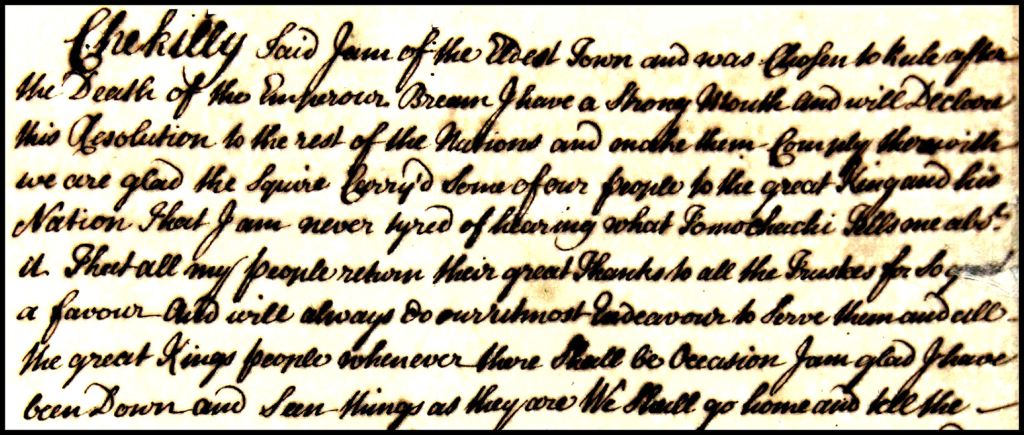 Chekilly Said I am of the Eldest Town and was Chosen to Rule after
the Death of the Emperour Bream I have a Strong Mouth and will Declare
this Resolution to the rest of the Nations and make them Comply therewith
we are glad the Squire Carry'd Some of our people to the great King and his
Nation That I am never tyred of hearing what Tomochachi Tells me abt.
it. That all my people return their great Thanks to all the Trustees for So
a favour And will always do our utmost Endeavour to Serve them and all
the great Kings people whenever there Shall be Occasion I am glad I have
been Down and Seen things as they are We Shall go home and tell the